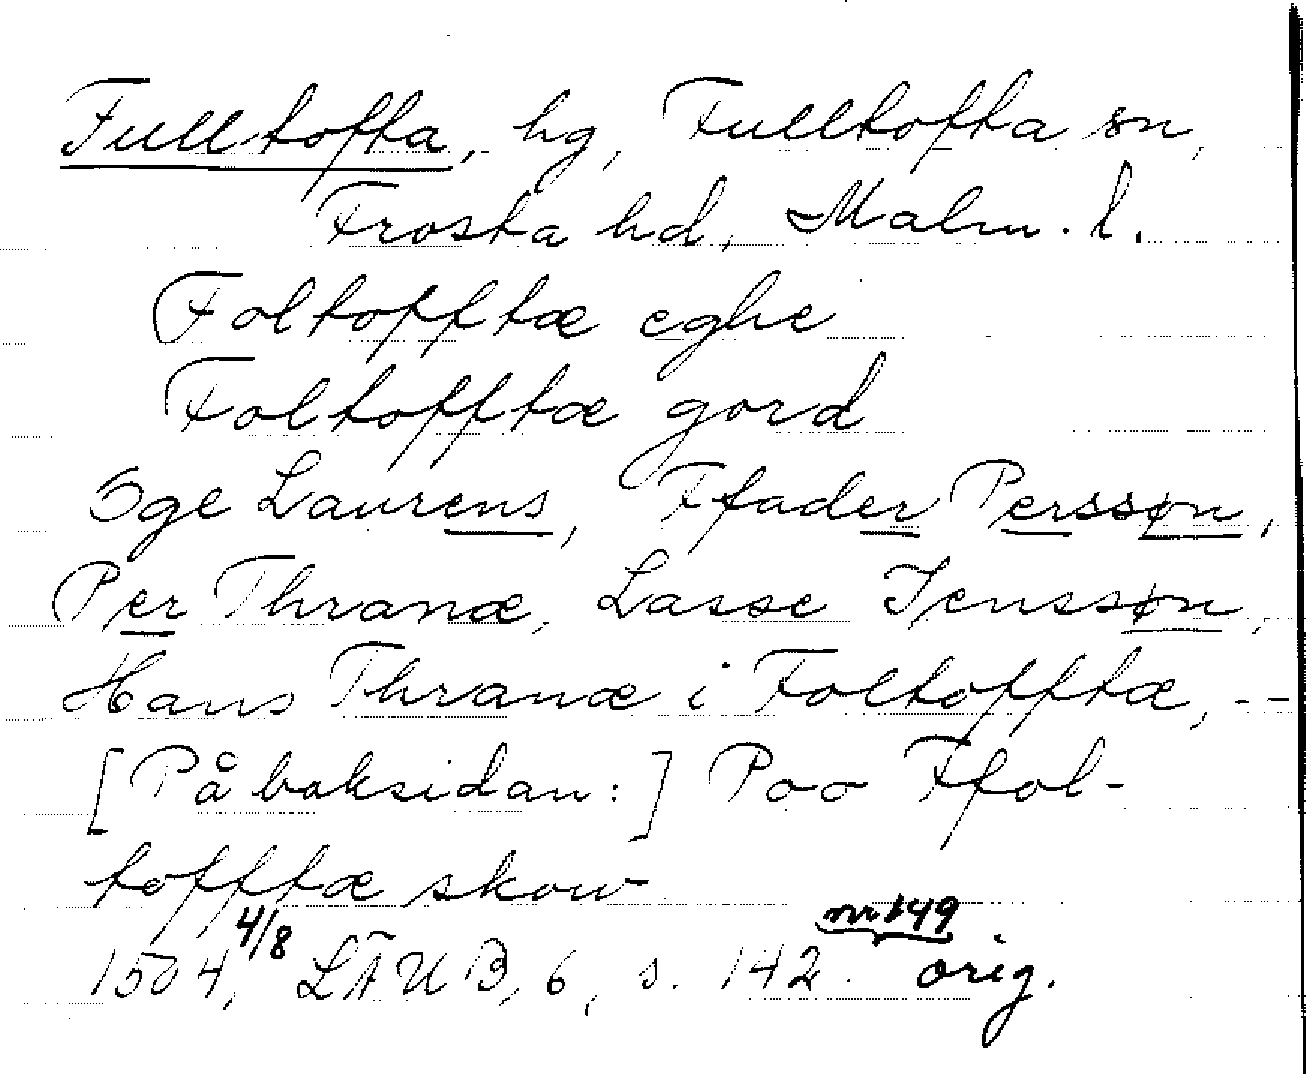 Fulltofta, hg, Fulltofta sn,
Frosta hd, Malm. l.
Foltofftæ eghe
Foltofftæ gord
Oge Laurens, Ffader Perssøn,
Per Thranæ, Lasse Jenssøn,
Hans Thranæ i Foltofftæ, --
[På baksidan:] Poo Ffol-
tofftæ skow
1504, 4/8 LÄUB, 6, s. 142. nr 149 orig.